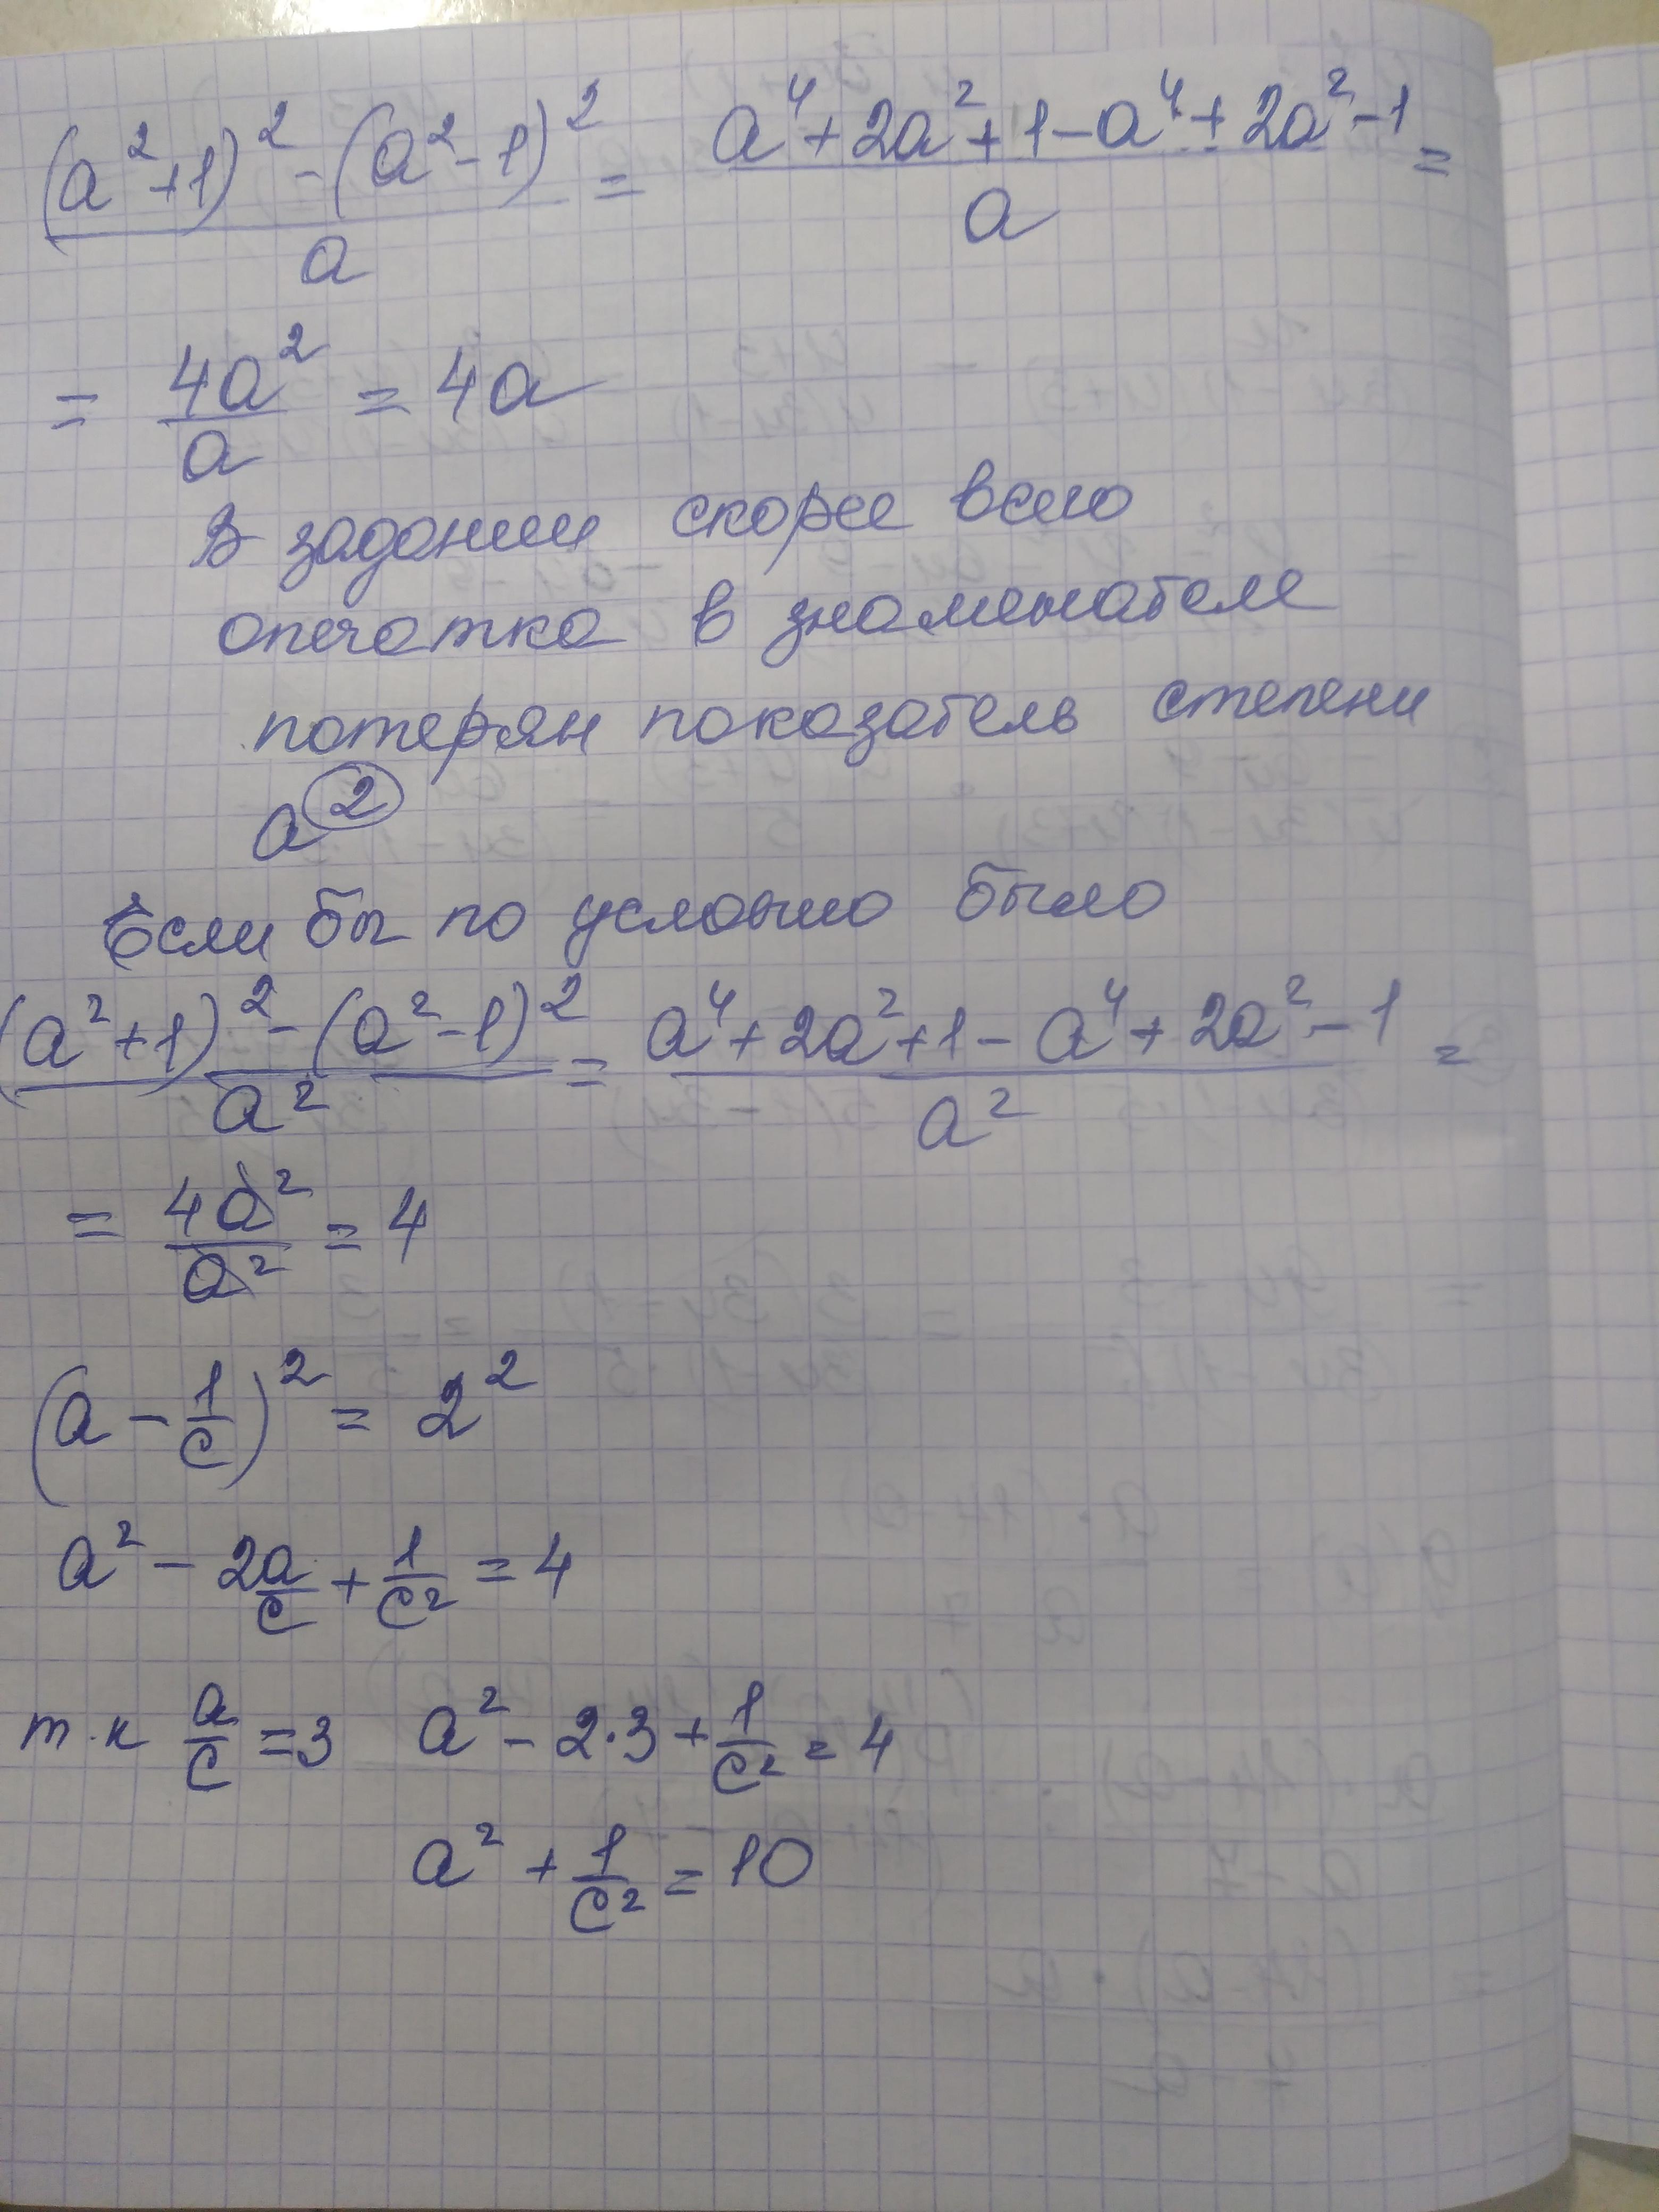 (a²+1)² - (a²-1)² / a = a⁴ + 2a² + 1 - a⁴ + 2a² - 1 / a =
= 4a² / a = 4a
В задании скорее всего
опечатка в знаменателе
потерян показатель степени
a²
Если бы по условию было
(a²+1)² - (a²-1)² / a² = a⁴ + 2a² + 1 - a⁴ + 2a² - 1 / a² =
= 4a² / a² = 4
(a - 1/c)² = 2²
a² - 2a/c + 1/c² = 4
т.к a/c = 3 a² - 2·3 + 1/c² = 4
a² + 1/c² = 10